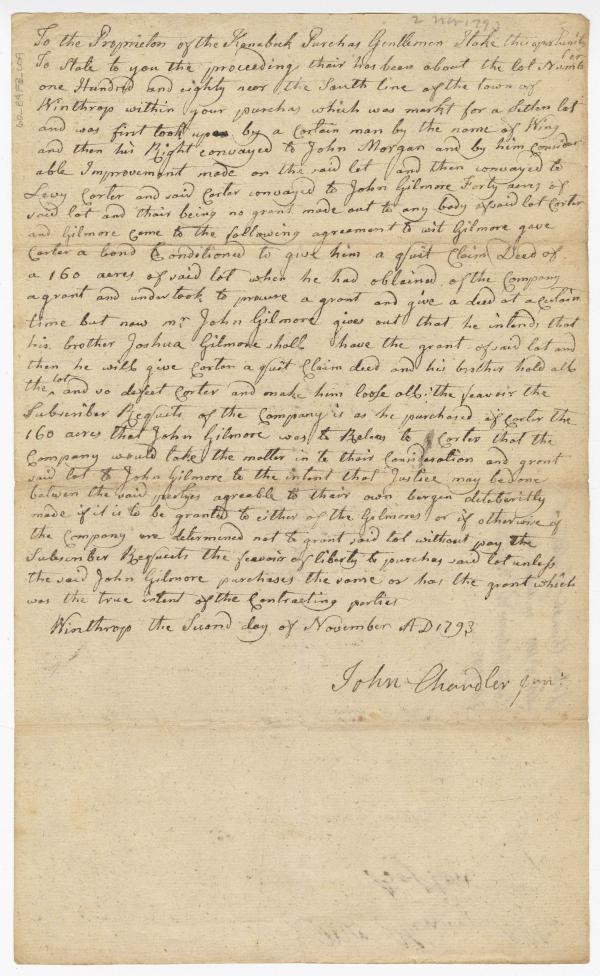 2 Nov 1793
To the Proprietors of the Kenebeck Purchas Gentlemen I take this opertunity
To State to you the proceeding their has been about the lot Number
one Hundred and eighty near the South line of the town of
Winthrop within your purchas which was markt for a Setlers lot
and was first took up by a Certain man by the name of Wing
and then his Right convayed to John Morgan and by him Consider
able Improvement made on the said lot and then convayed to
Levy Corter and said Corter convayed to John Gilmore Forty acres of
said lot and thair being no grant made out to any body of said lot Corter
and Gilmore come to the following agreement to wit Gilmore gave
Corter a bond Conditioned to give him a quit Claim Deed of
a 160 acres of said lot when he had obtained of the Company
a grant and undertook to procure a grant and give a deed at a Certain
time but now mr John Gilmore gives out that he intends that
his brother Joshua Gilmore shall have the grant of said lot and
then he will give Corter a quit Claim deed and his brother hold all
the lot and so defeet Corter and make him loose all; the feavoir the
Subscriber Requits of the Company is as he purchased of Corter the
160 acres that John Gilmore was to Releas to Corter that the
Company would take the matter in to their Consideration and grant
said lot to John Gilmore to the intent that Justice may be done
betwen the said partyes agreable to their own bergen deliberitly
made if it is to be granted to either of the Gilmores or if otherwise if
the Company are determined not to grant said lot without pay the
Subscriber Requests the feavoir of liberty to purchas said lot unless
the said John Gilmore purchases the same or has the grant which
was the true intent of the Contracting parties
Winthrop the Second day of November AD 1793
John Chandler junr